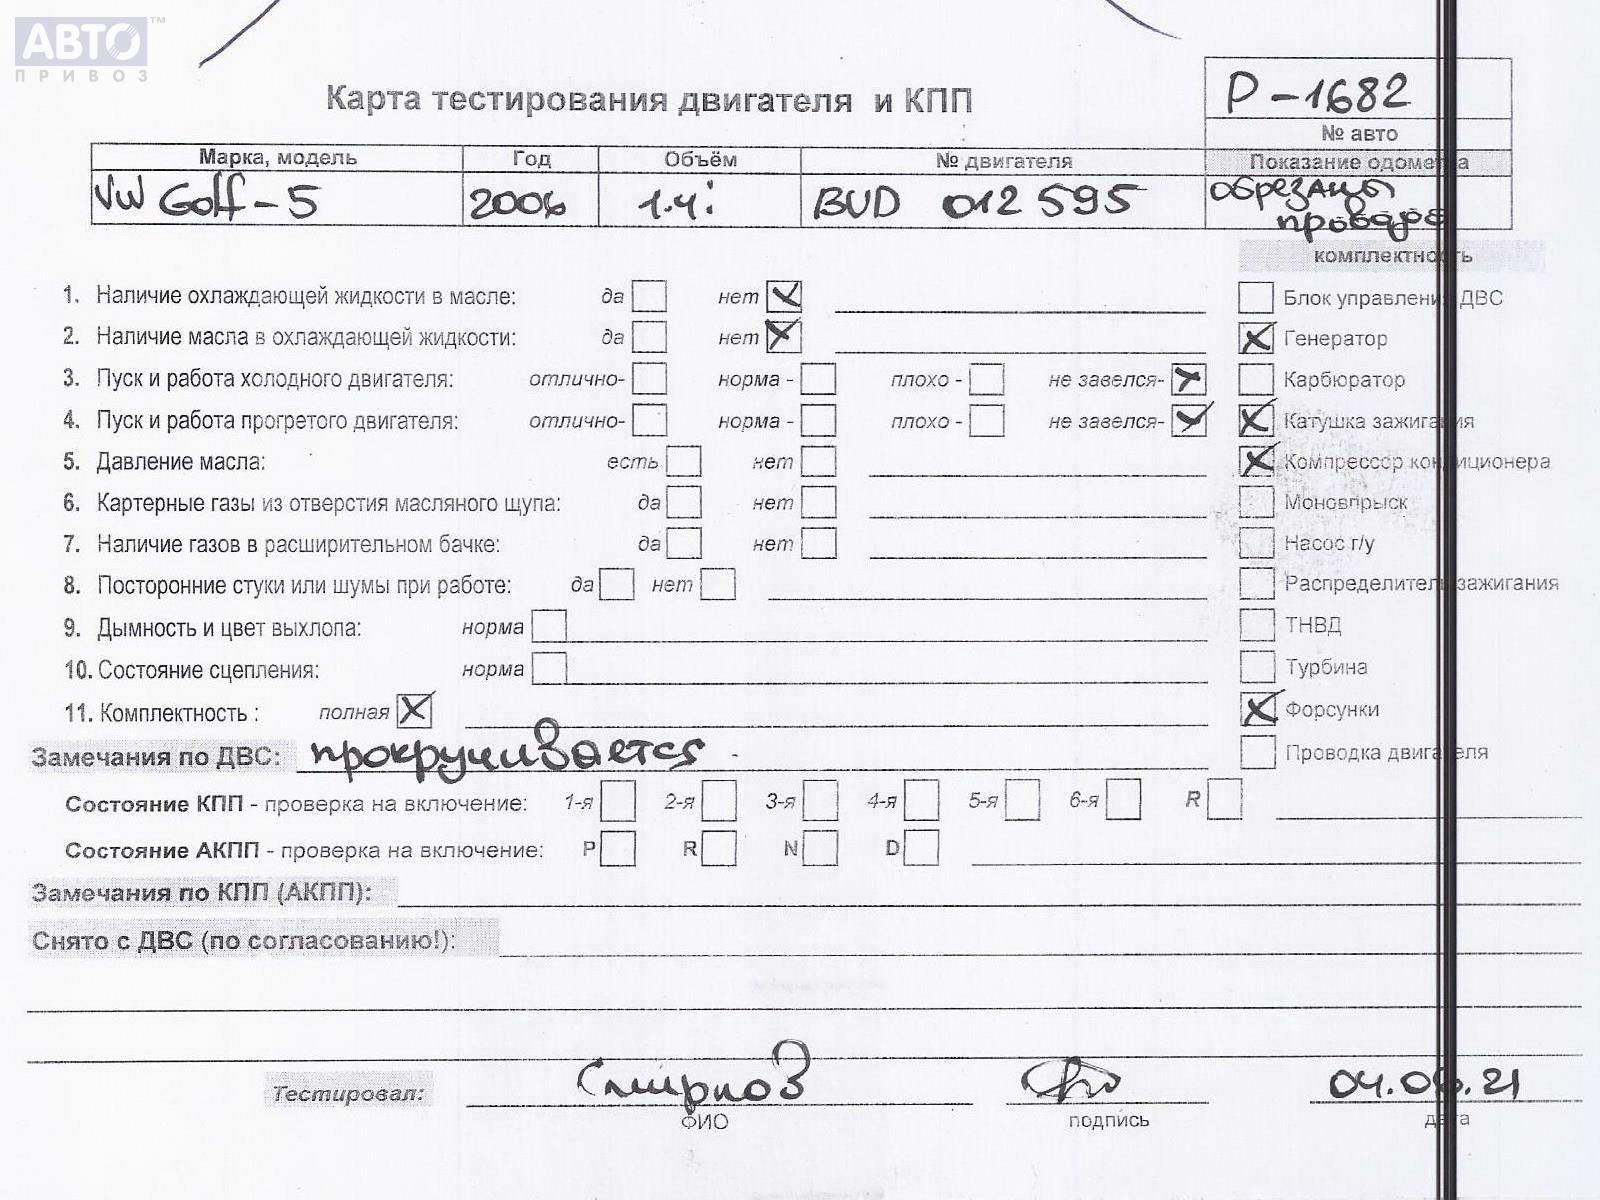 АВТО™
ПРИВОЗ
Карта тестирования двигателя и КПП
Р-1682
№ авто
Марка, модель Год Объём № двигателя Показание одометра
VW Golf-5 2006 1.4i BUD 012595 обрезаны
провода
комплектность
1. Наличие охлаждающей жидкости в масле: да нет
Блок управления ДВС
2. Наличие масла в охлаждающей жидкости: да нет
Генератор
3. Пуск и работа холодного двигателя: отлично- норма - плохо - не завелся-
Карбюратор
4. Пуск и работа прогретого двигателя: отлично- норма - плохо - не завелся-
Катушка зажигания
5. Давление масла: есть нет
Компрессор кондиционера
6. Картерные газы из отверстия масляного щупа: да нет
Моновпрыск
7. Наличие газов в расширительном бачке: да нет
Насос г/у
8. Посторонние стуки или шумы при работе: да нет
Распределитель зажигания
9. Дымность и цвет выхлопа: норма
ТНВД
10. Состояние сцепления: норма
Турбина
11. Комплектность : полная
Форсунки
Замечания по ДВС: прокручивается
Проводка двигателя
Состояние КПП - проверка на включение: 1-я 2-я 3-я 4-я 5-я 6-я R
Состояние АКПП - проверка на включение: P R N D
Замечания по КПП (АКПП):
Снято с ДВС (по согласованию!):
Тестировал: Смирнов 04.06.21
ФИО подпись дата